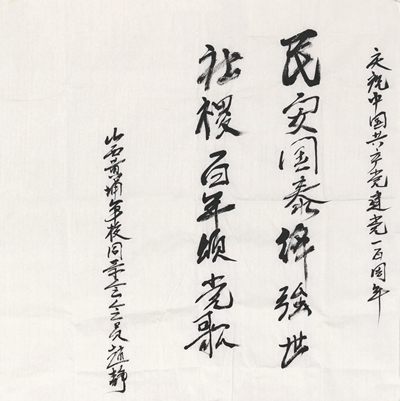 庆祝中国共产党建党一百周年
民安国泰绎强世
社稷百年颂党歌
山西黄埔军校同学会会员赵静